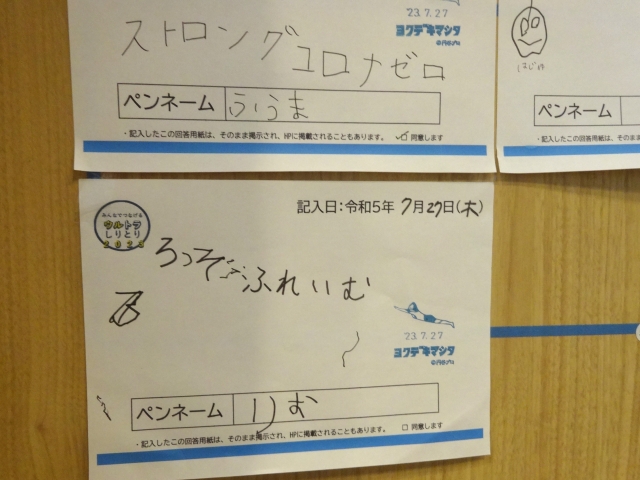 '23.7.27
ヨクデキマシタ
ストロング
コロナゼロ
ペンネーム
うるま
・記入したこの回答用紙は、そのまま掲示され、HPに掲載されることもあります。
同意します
ペンネーム
・記入したこの回答用紙は、そのまま掲示さ
記入日:令和5年 7月27日(木)
みんなでつなげる
ウルトラ
しりとり
2023
ろっそ
ふれいむ
'23.7.27
ヨクデキマシタ
ペンネーム
りむ
・記入したこの回答用紙は、そのまま掲示され、HPに掲載されることもあります。
同意します